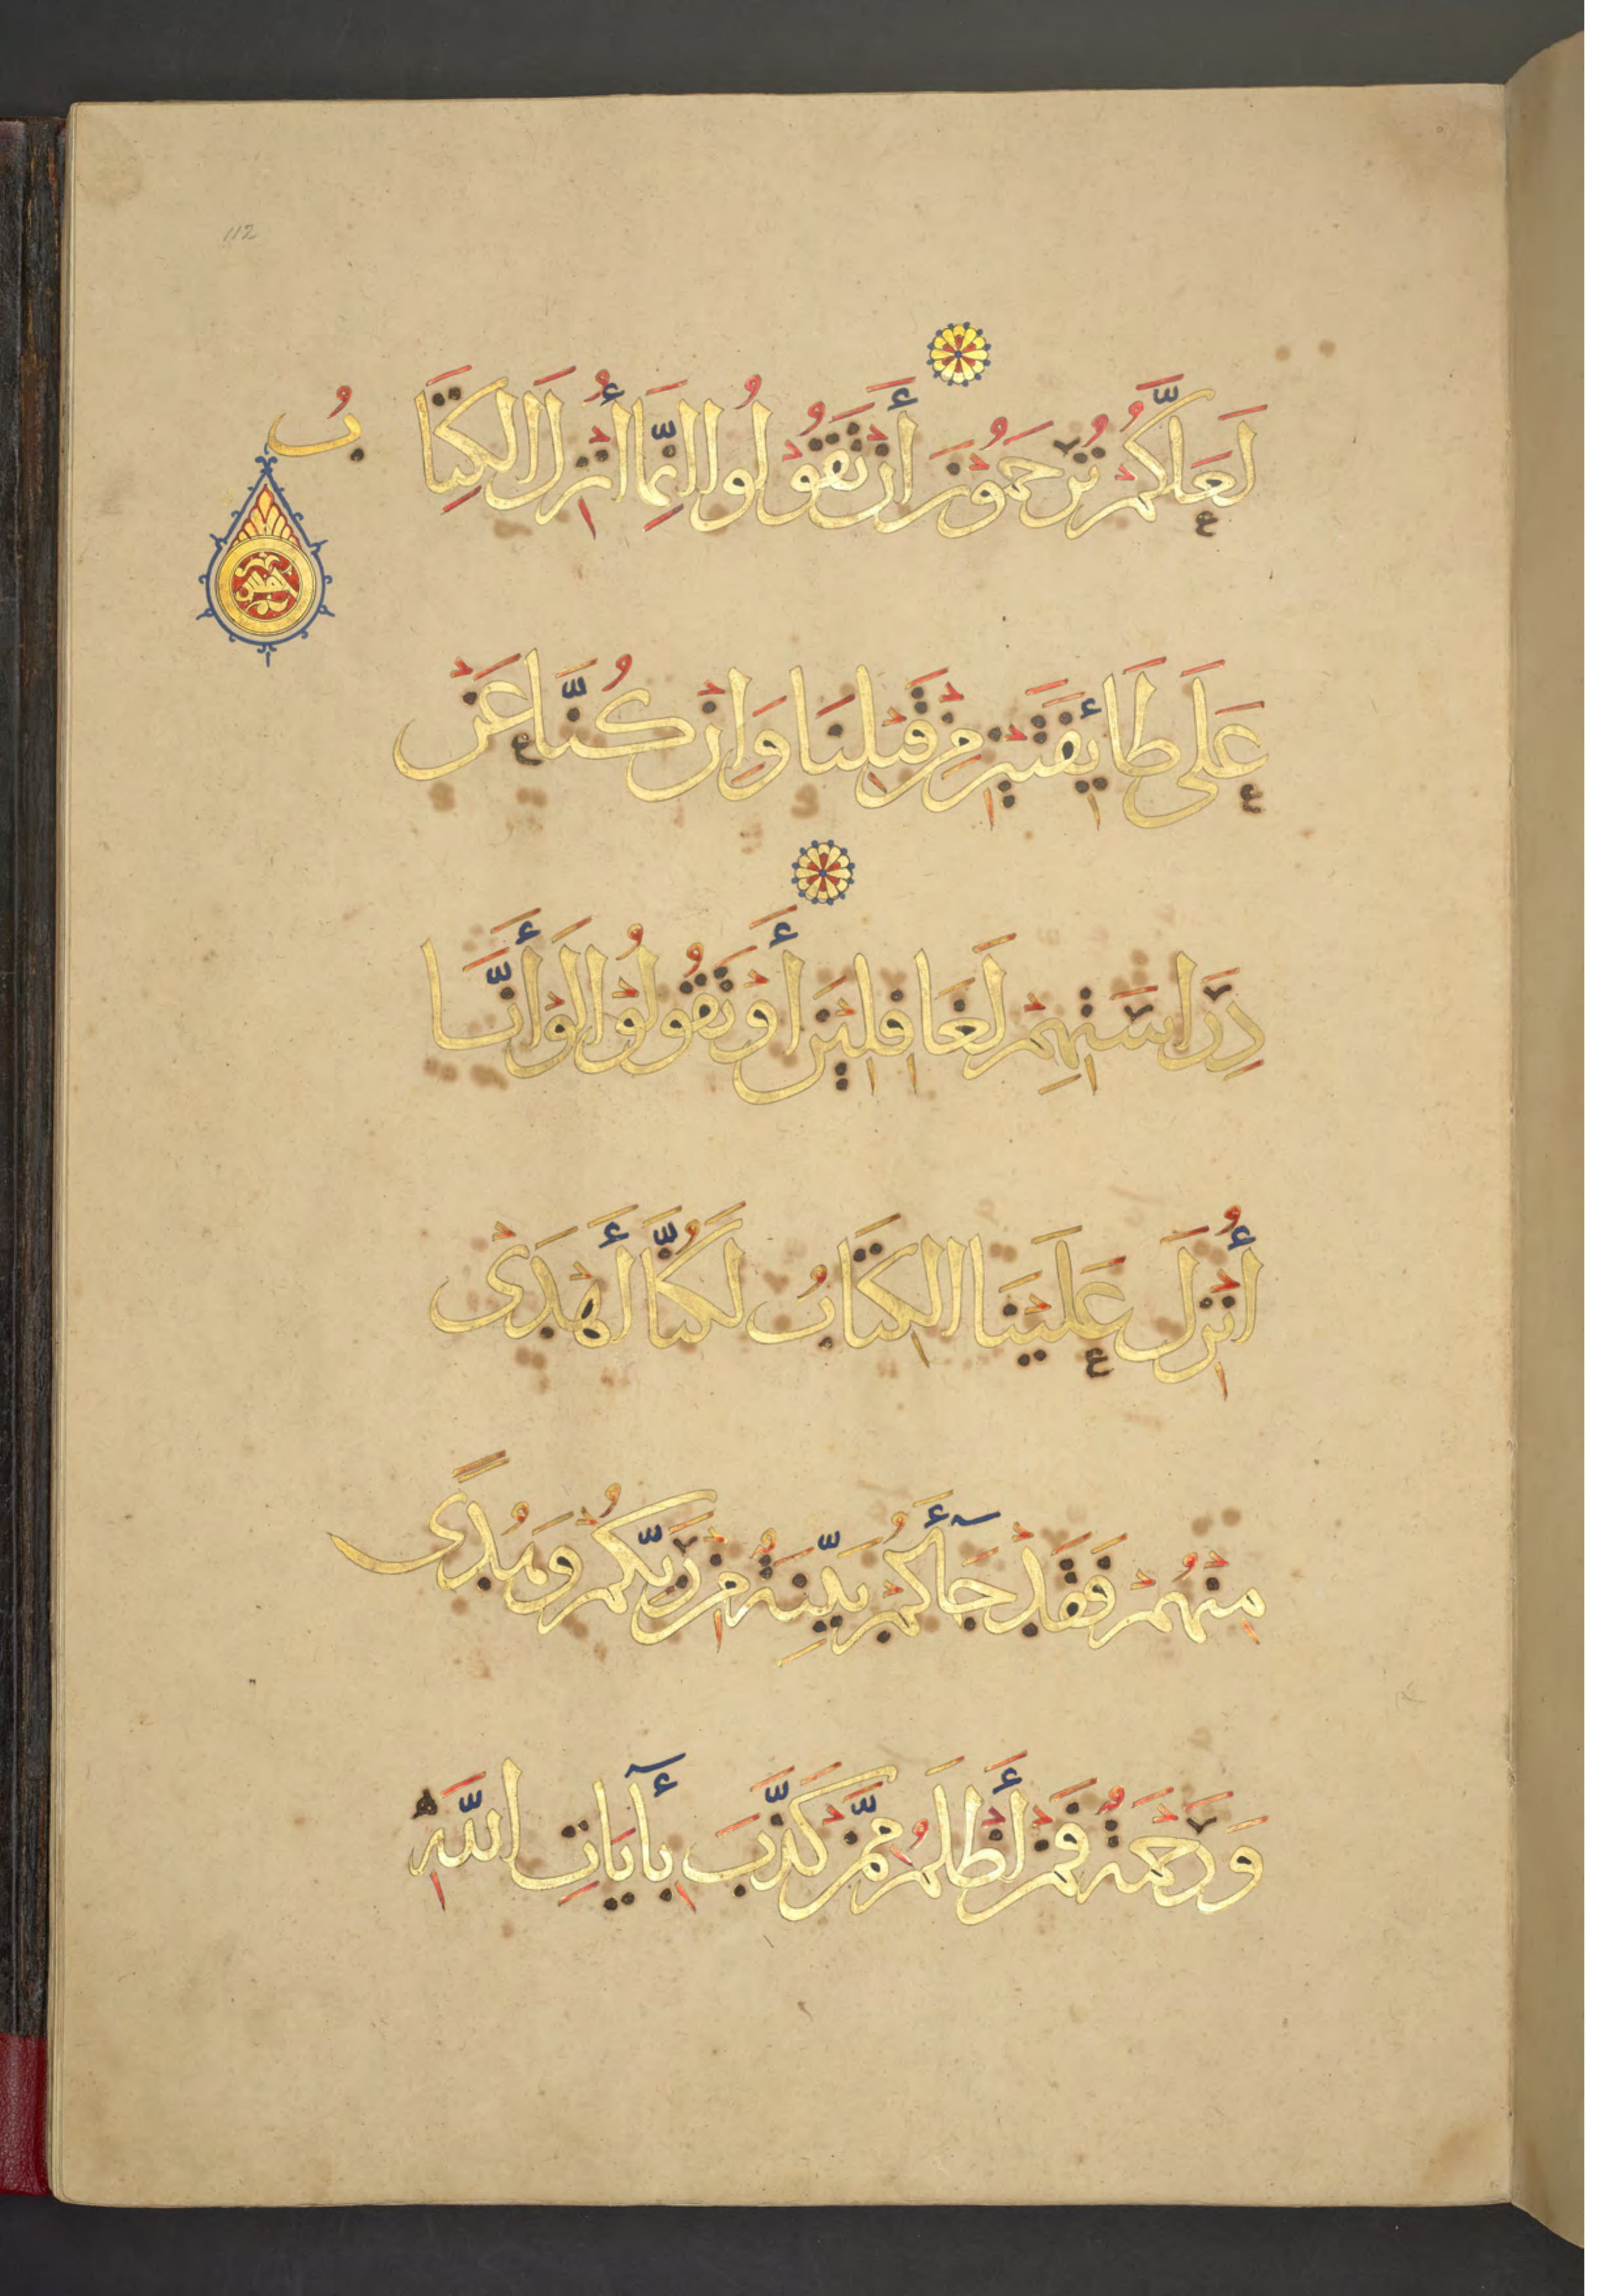 112
لَعَلَّكُمْ تُرْحَمُوْنَ أَنْ تَقُوْلُوا إِنَّمَا أُنْزِلَ الْكِتَابُ
عَلَى طَائِفَتَيْنِ مِنْ قَبْلِنَا وَإِنْ كُنَّا عَنْ
دِرَاسَتِهِمْ لَغَافِلِيْنَ أَوْ تَقُوْلُوْا لَوْ أَنَّا
أُنْزِلَ عَلَيْنَا الْكِتَابُ لَكُنَّا أَهْدَىْ
مِنْهُمْ فَقَدْ جَآءَكُمْ بَيِّنَةٌ مِنْ رَبِّكُمْ وَهُدًى
وَرَحْمَةٌ فَمَنْ أَظْلَمُ مِمَّنْ كَذَّبَ بِآيَاتِ اللَّهِ